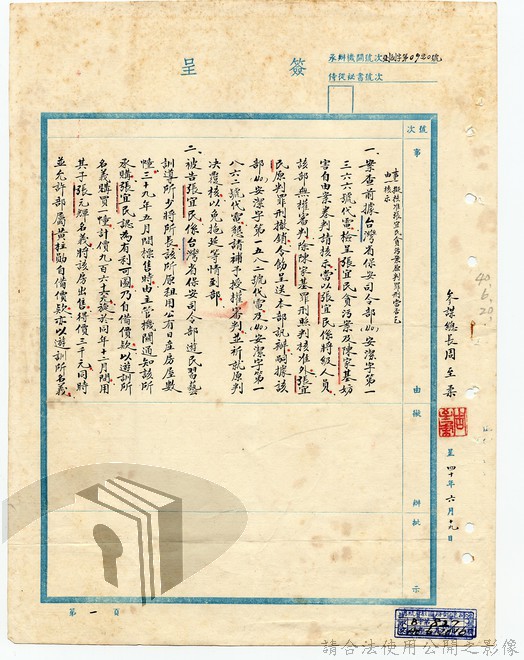 承辦機關號次
侍從秘書號次
簽呈
號次
事由
擬辦
批示
事由
擬核准張宜民貪污案原判罪刑當否乞
核示
一、案查前據台灣省保安司令部(40)安潔字第一
三六六號代電檢呈張宜民貪污案及陳家基妨
害自由案卷判請核示當以張宜民係將級人員
該部無權審判除陳家基罪刑照判核准外張宜
民原判罪刑撤銷令飭呈送本部訊辦嗣據該
部(40)安潔字第一五八二號代電及(40)安潔字第一
八六二號代電懇請補予授權審判並祈就原判
決覆核以免拖延等情到部
二、被告張宜民係台灣省保安司令部遊民習藝
訓導所少將所長該所原租用公有日產房屋數
幢三十九年五月間標售時由主管機關通知該所
承購張宜民認為有利可圖乃自備價款以遊訓所
名義購買一幢計價九百六十美於同年十二月間用
其子張元輝名義將該房出售得價三千元同時
並允許部屬黃柱勛自備價款亦以遊訓所名義
參謀總長周至柔
呈 四十年六月十九日
40.6.20.
第一頁
請合法使用公開之影像